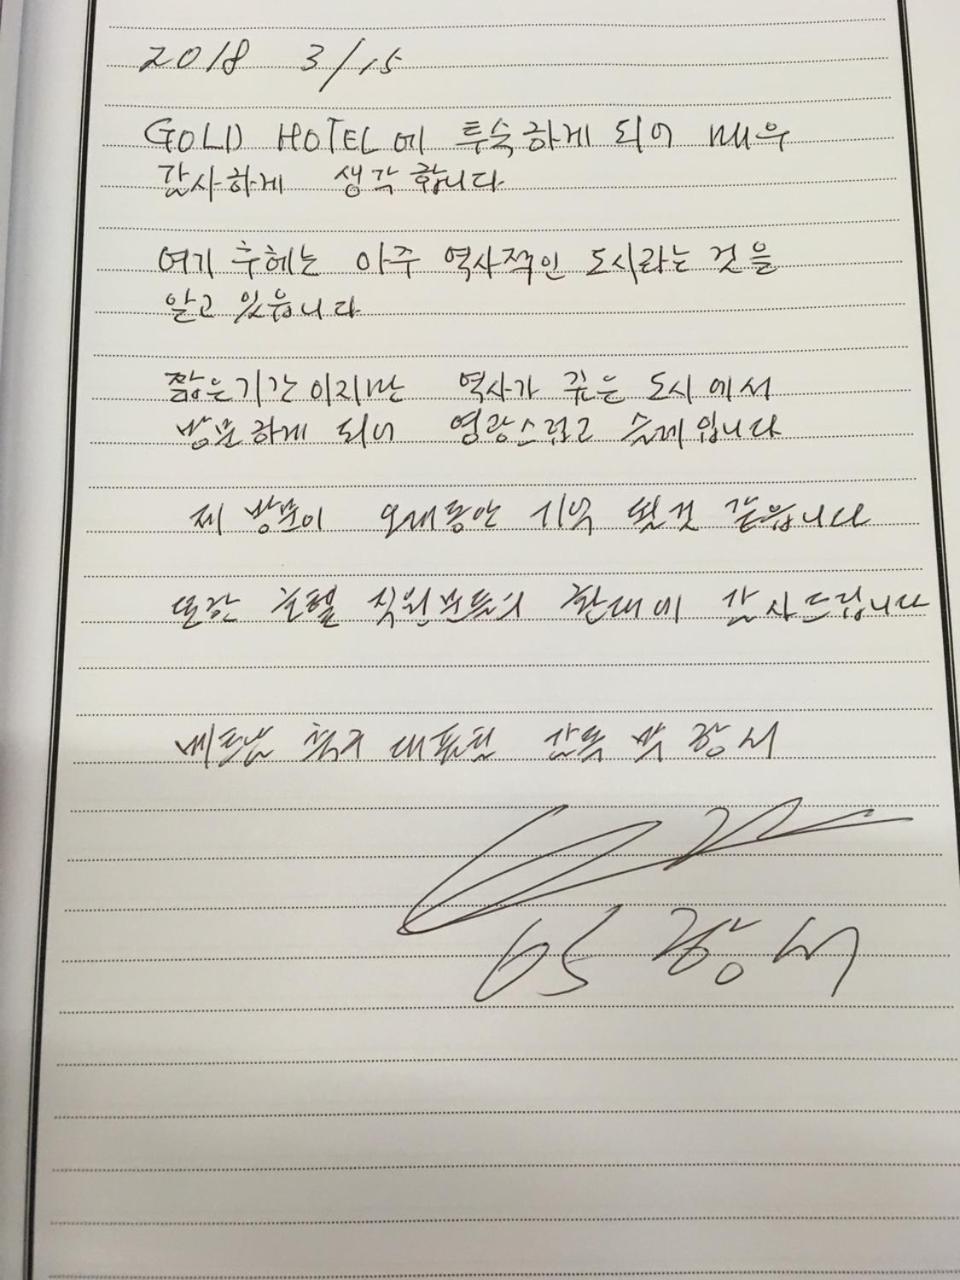 2018 3/15
GOLD HOTEL에 투숙하게 되어 매우
감사하게 생각합니다
여기 후에는 아주 역사적인 도시라는 것을
알고 있읍니다
짧은기간이지만 역사가 깊은 도시에서
방문하게 되어 영광스럽고
제 방문이 오래동안 기억 될것 같읍니다
또한 호텔 직원분들의 환대에 감사드립니다
베트남 축구 대표팀 감독 박항서
박항서